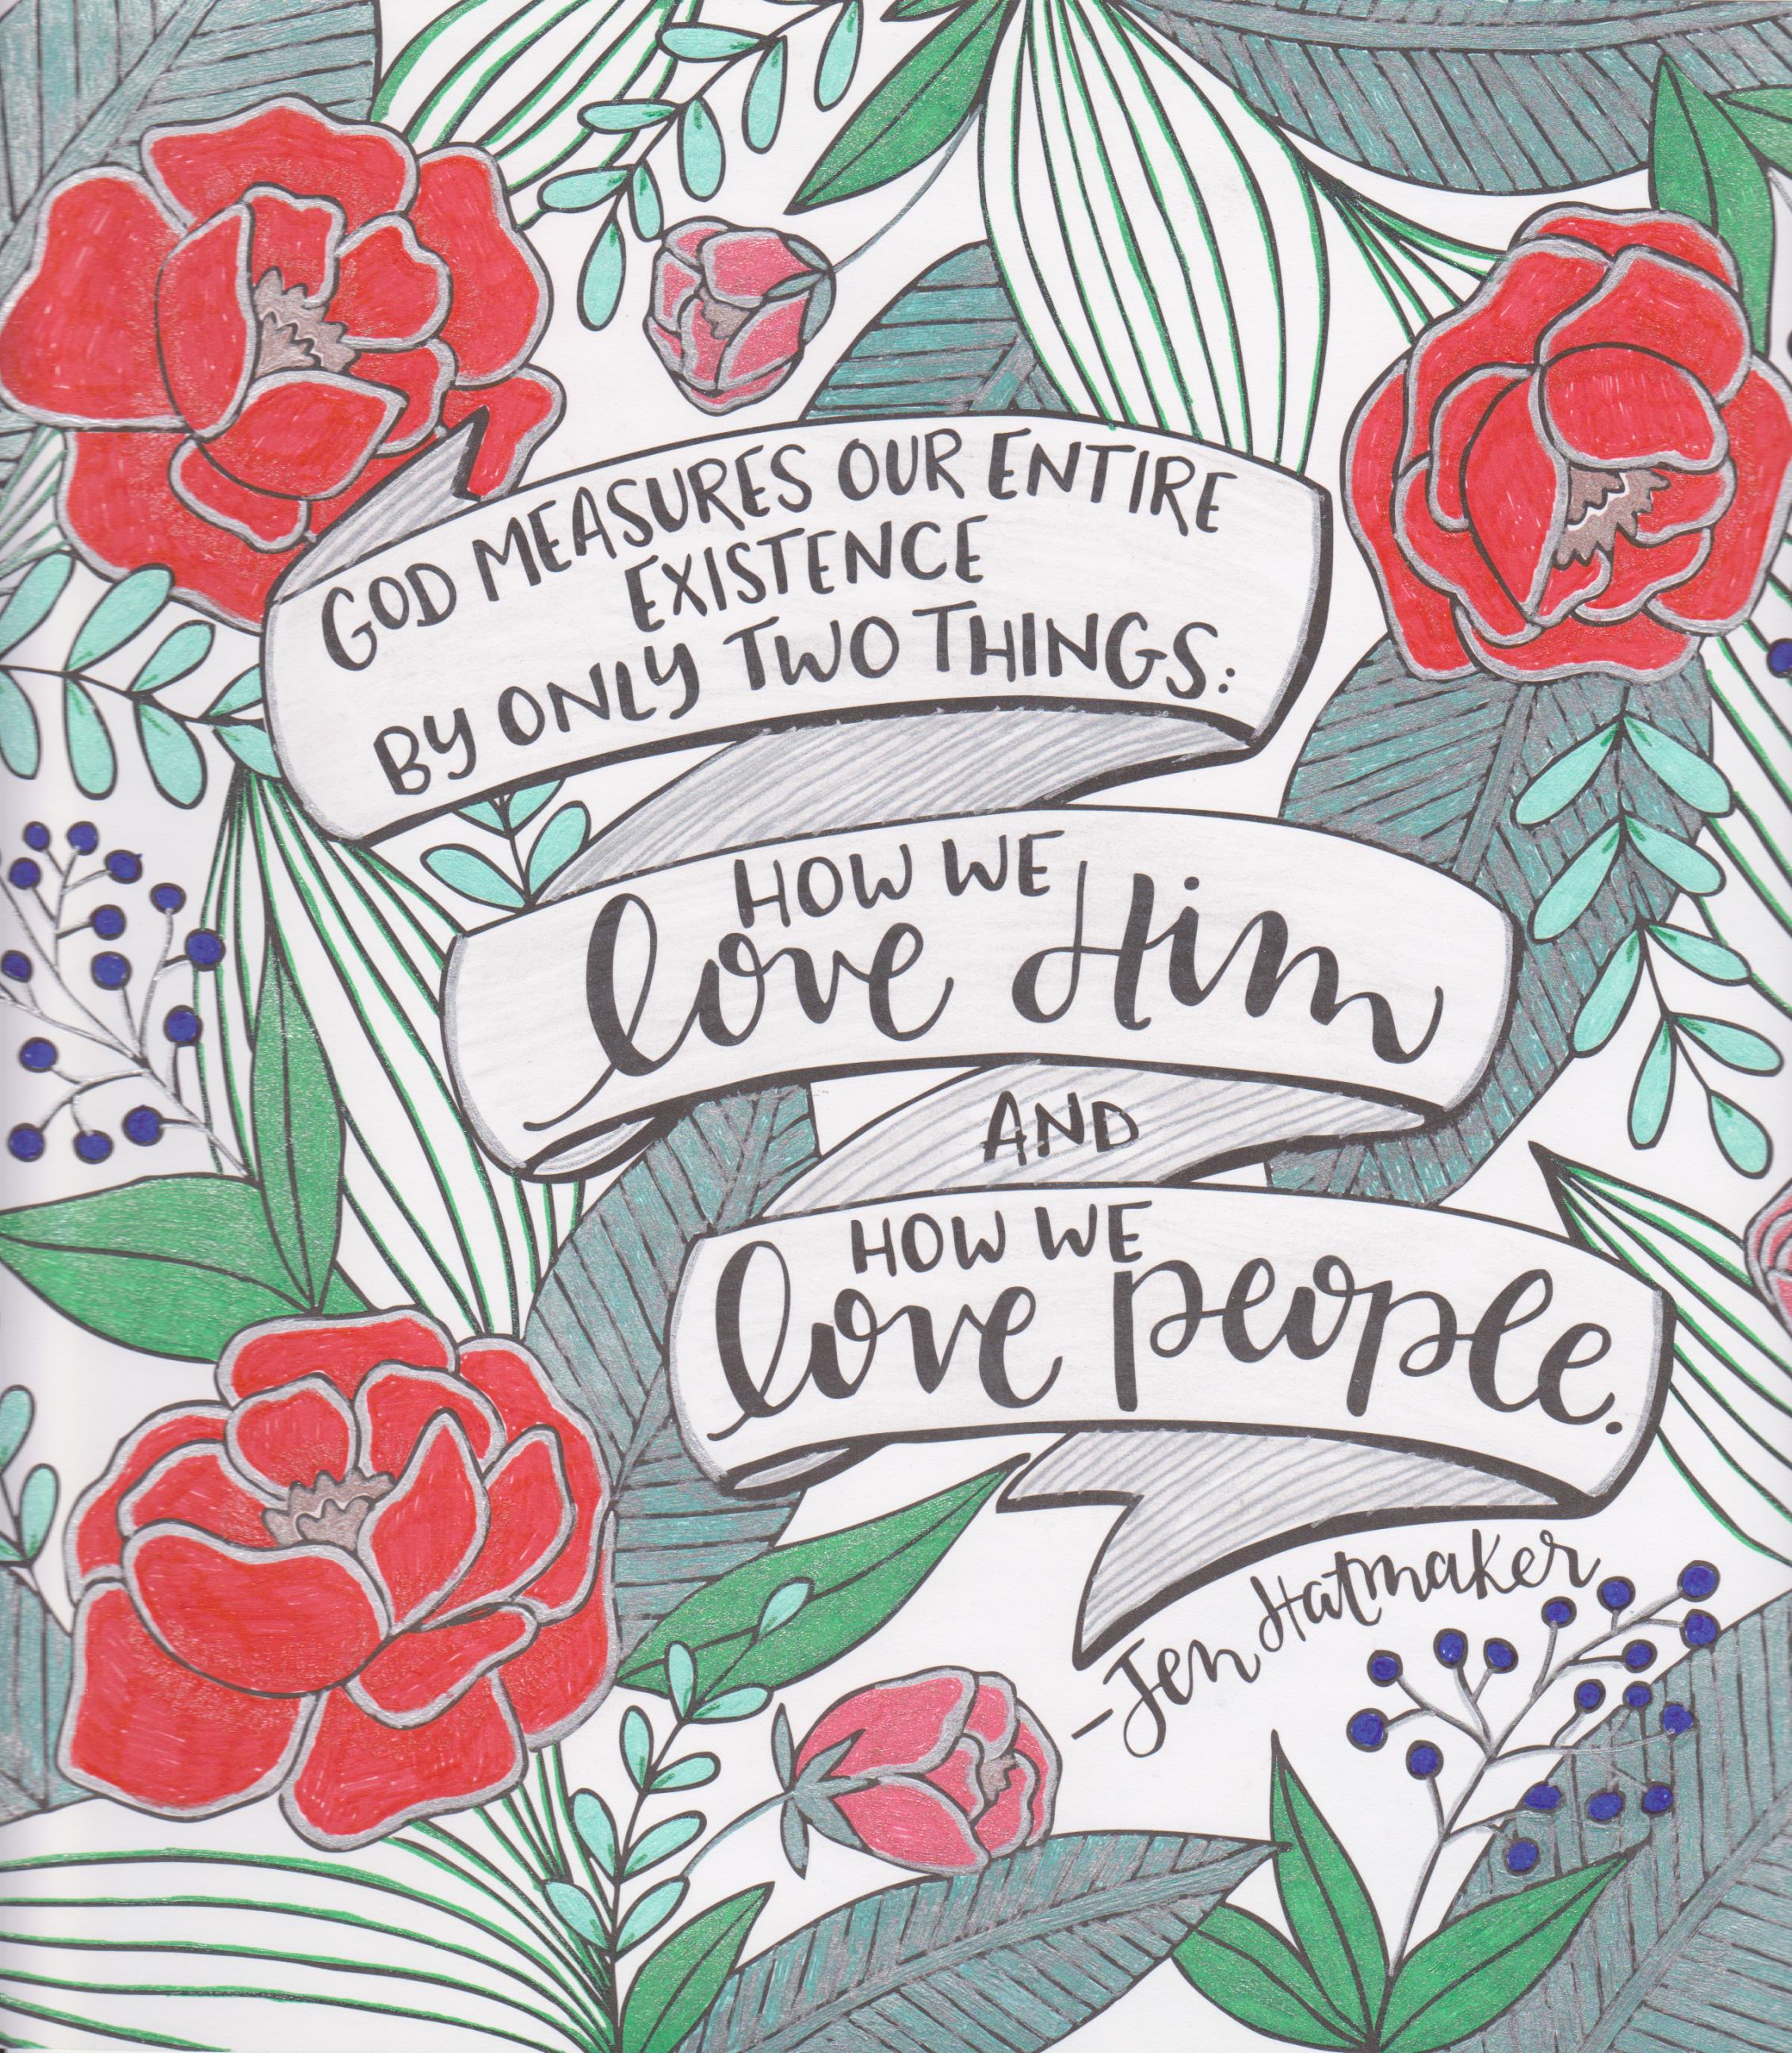 GOD MEASURES OUR ENTIRE
EXISTENCE
BY ONLY TWO THINGS:
HOW WE
love Him
AND
HOW WE
love people.
-Jen Hatmaker